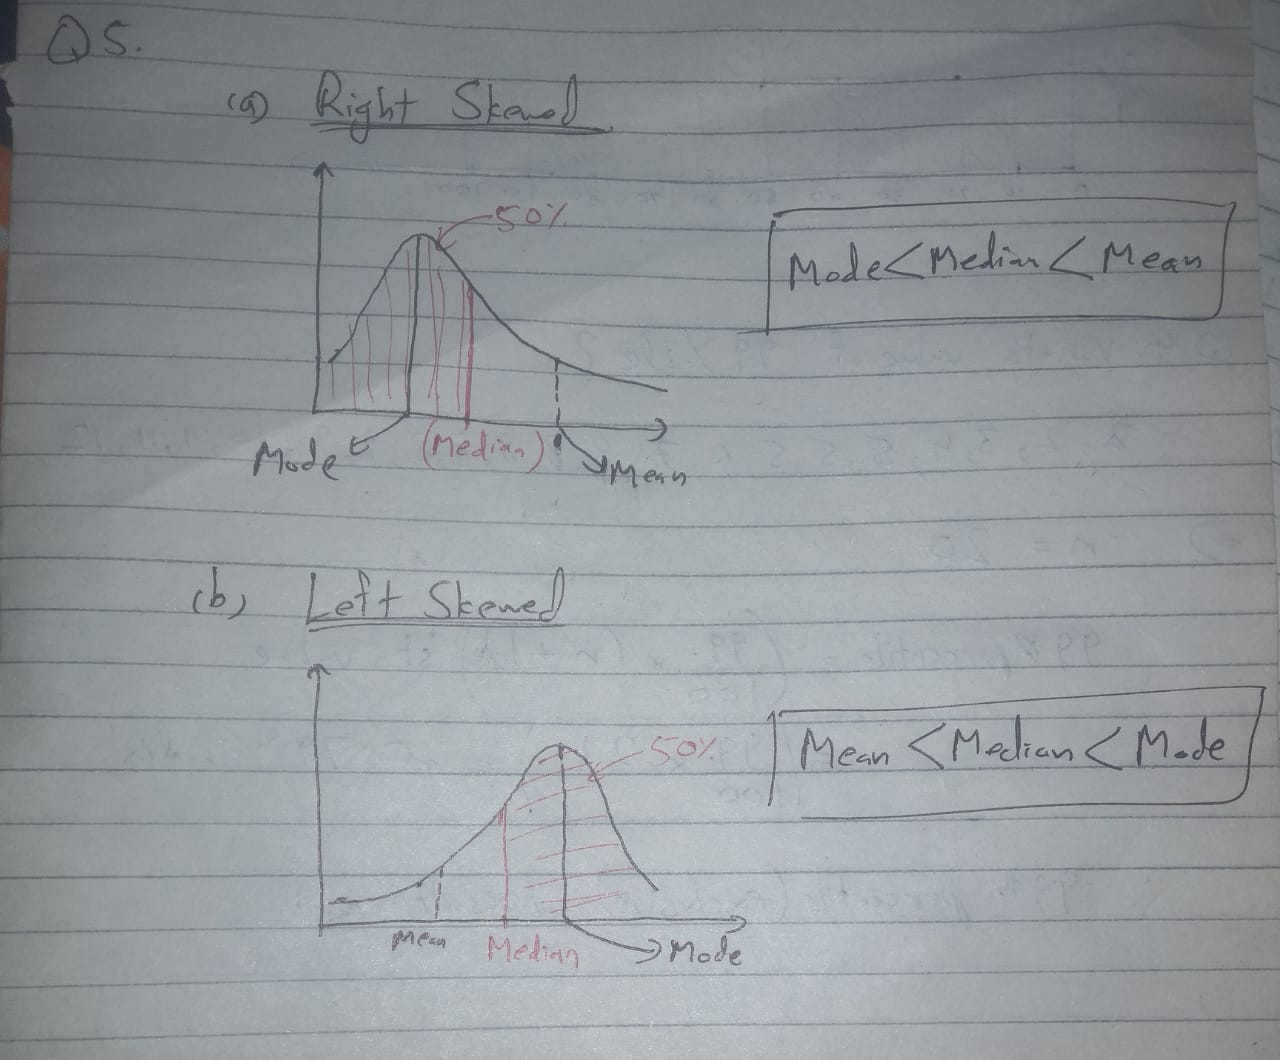 Q5.
(a) Right Skewed
50%
Mode < Median < Mean
Mode (Median) Mean
(b) Left Skewed
50%
Mean < Median < Mode
Mean Median Mode